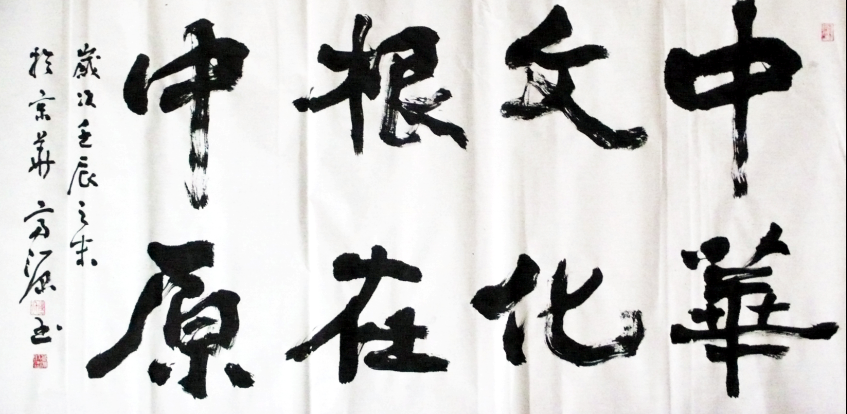 中華
文化
根在
中原
歲次壬辰之末
於京華
书